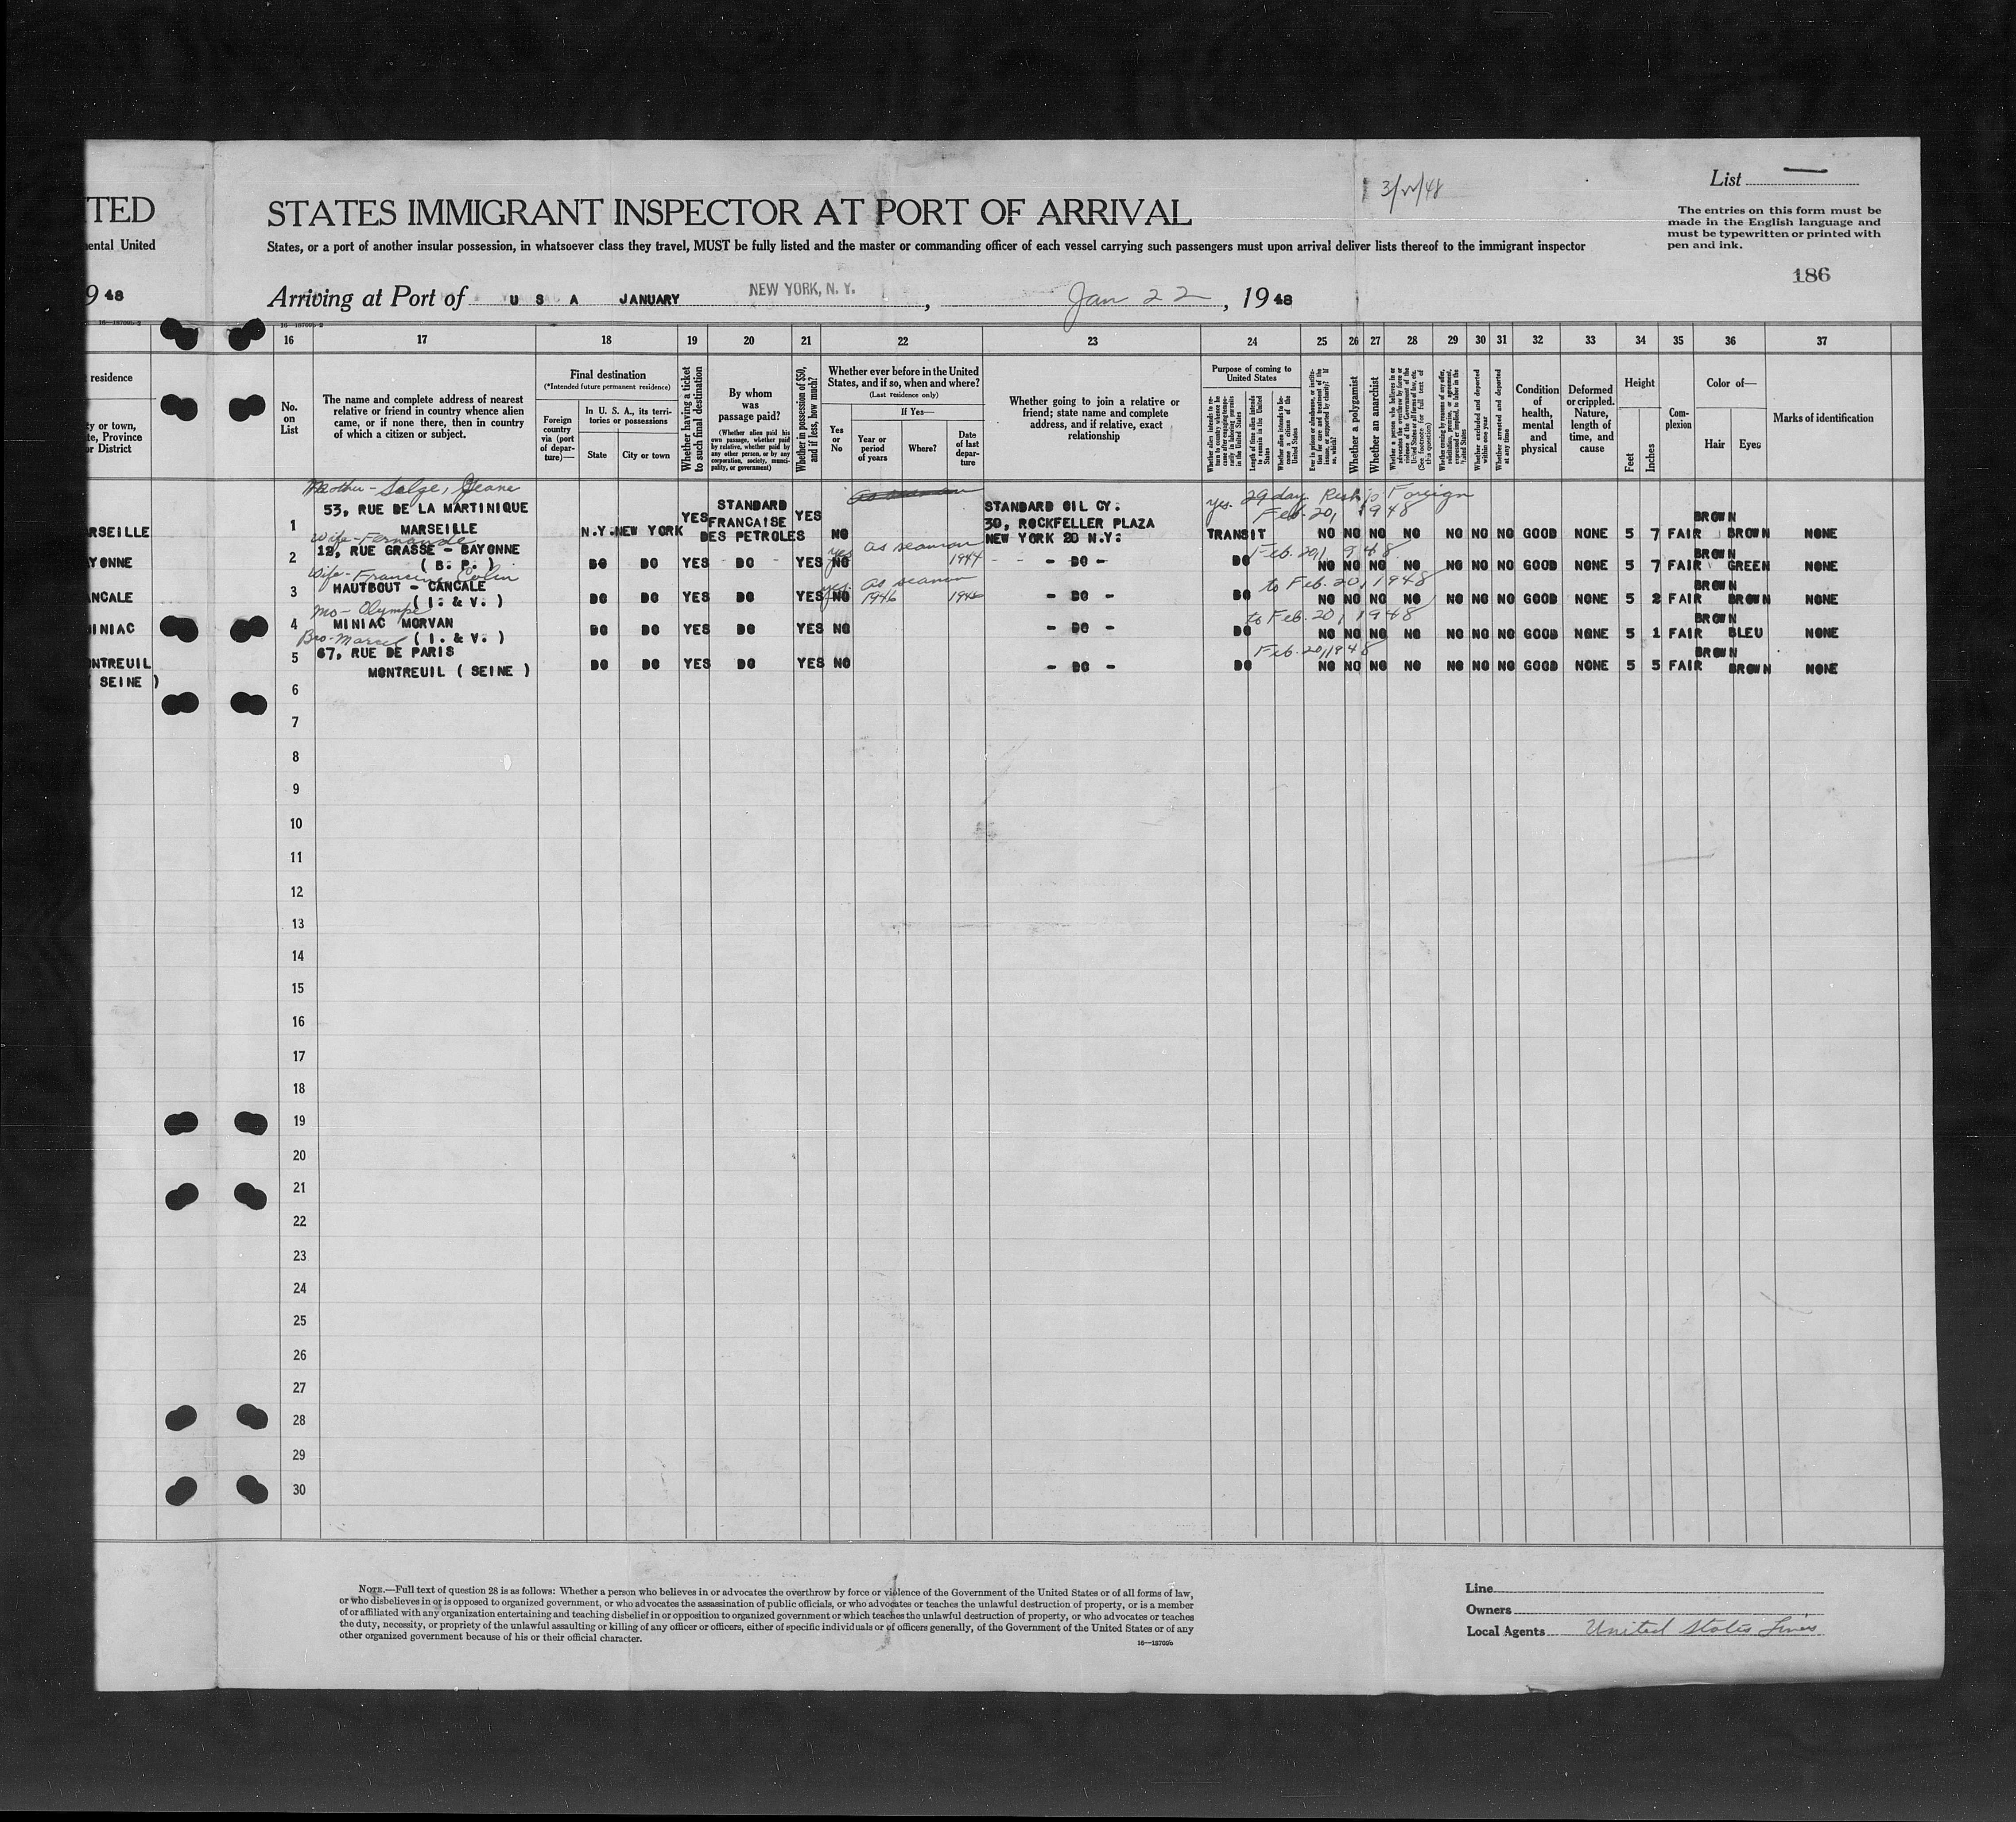 3/22/48
List
TED
STATES IMMIGRANT INSPECTOR AT PORT OF ARRIVAL
The entries on this form must be
made in the English language and
must be typewritten or printed with
pen and ink.
ental United
States, or a port of another insular possession, in whatsoever class they travel, MUST be fully listed and the master or commanding officer of each vessel carrying such passengers must upon arrival deliver lists thereof to the immigrant inspector
186
9 48
Arriving at Port of U S A JANUARY NEW YORK, N. Y. , Jan 22 , 1948
16 17 18 19 20 21 22 23 24 25 26 27 28 29 30 31 32 33 34 35 36 37
residence
ty or town,
te, Province
or District
No.
on
List
The name and complete address of nearest
relative or friend in country whence alien
came, or if none there, then in country
of which a citizen or subject.
Final destination
(*Intended future permanent residence)
Foreign
country
via (port
of depar-
ture)—
In U. S. A., its terri-
tories or possessions
State
City or town
Whether having a ticket
to such final destination
By whom
was
passage paid?
(Whether alien paid his
own passage, whether paid
by relative, whether paid by
any other person, or by any
corporation, society, munici-
pality, or government)
Whether in possession of $50,
and if less, how much?
Whether ever before in the United
States, and if so, when and where?
(Last residence only)
Yes
or
No
If Yes—
Year or
period
of years
Where?
Date
of last
depar-
ture
Whether going to join a relative or
friend; state name and complete
address, and if relative, exact
relationship
Purpose of coming to
United States
Length of time alien intends
to remain in the United
States
Whether alien intends to be-
come a citizen of the
United States
Whether a polygamist
Whether an anarchist
(See footnote for full text of
this question)
Whether excluded and deported
within one year
Whether arrested and deported
at any time
Condition
of
health,
mental
and
physical
Deformed
or crippled.
Nature,
length of
time, and
cause
Height
Feet
Inches
Com-
plexion
Color of—
Hair
Eyes
Marks of identification
Mother - Salge, Jeane
53, RUE DE LA MARTINIQUE
ARSEILLE 1 MARSEILLE N.Y. NEW YORK YES STANDARD FRANCAISE DES PETROLES YES NO as seaman
STANDARD OIL CY:
30, ROCKFELLER PLAZA
NEW YORK 20 N.Y:
yes. 29 day Reship Foreign
Feb. 20, 1948
TRANSIT NO NO NO NO NO NO NO GOOD NONE 5 7 FAIR BROWN BROWN NONE
Wife - Fernande
12, RUE GRASSE - BAYONNE
AYONNE 2 ( B. P. ) DO DO YES - DO - YES NO yes as seaman 1944 - DO - DO Feb. 20, 1948 NO NO NO NO NO NO NO GOOD NONE 5 7 FAIR BROWN GREEN NONE
Wife - Francine Colin
HAUTBOUT - CANCALE
ANCALE 3 ( I. & V. ) DO DO YES DO YES NO yes. as seaman 1946 1946 - DO - DO to Feb. 20, 1948 NO NO NO NO NO NO NO GOOD NONE 5 2 FAIR BROWN BROWN NONE
Mo - Olympe
MINIAC MORVAN
MINIAC 4 ( I. & V. ) DO DO YES DO YES NO - DO - DO to Feb. 20, 1948 NO NO NO NO NO NO NO GOOD NONE 5 1 FAIR BROWN BLEU NONE
Bro - Marcel
67, RUE DE PARIS
ONTREUIL
( SEINE )
5 MONTREUIL ( SEINE ) DO DO YES DO YES NO - DO - DO Feb. 20, 1948 NO NO NO NO NO NO NO GOOD NONE 5 5 FAIR BROWN BROWN NONE
6
7
8
9
10
11
12
13
14
15
16
17
18
19
20
21
22
23
24
25
26
27
28
29
30
NOTE.—Full text of question 28 is as follows: Whether a person who believes in or advocates the overthrow by force or violence of the Government of the United States or of all forms of law,
or who disbelieves in or is opposed to organized government, or who advocates the assassination of public officials, or who advocates or teaches the unlawful destruction of property, or is a member
of or affiliated with any organization entertaining and teaching disbelief in or opposition to organized government or which teaches the unlawful destruction of property, or who advocates or teaches
the duty, necessity, or propriety of the unlawful assaulting or killing of any officer or officers, either of specific individuals or of officers generally, of the Government of the United States or of any
other organized government because of his or their official character.
16—18709b
Line
Owners
Local Agents United States Lines